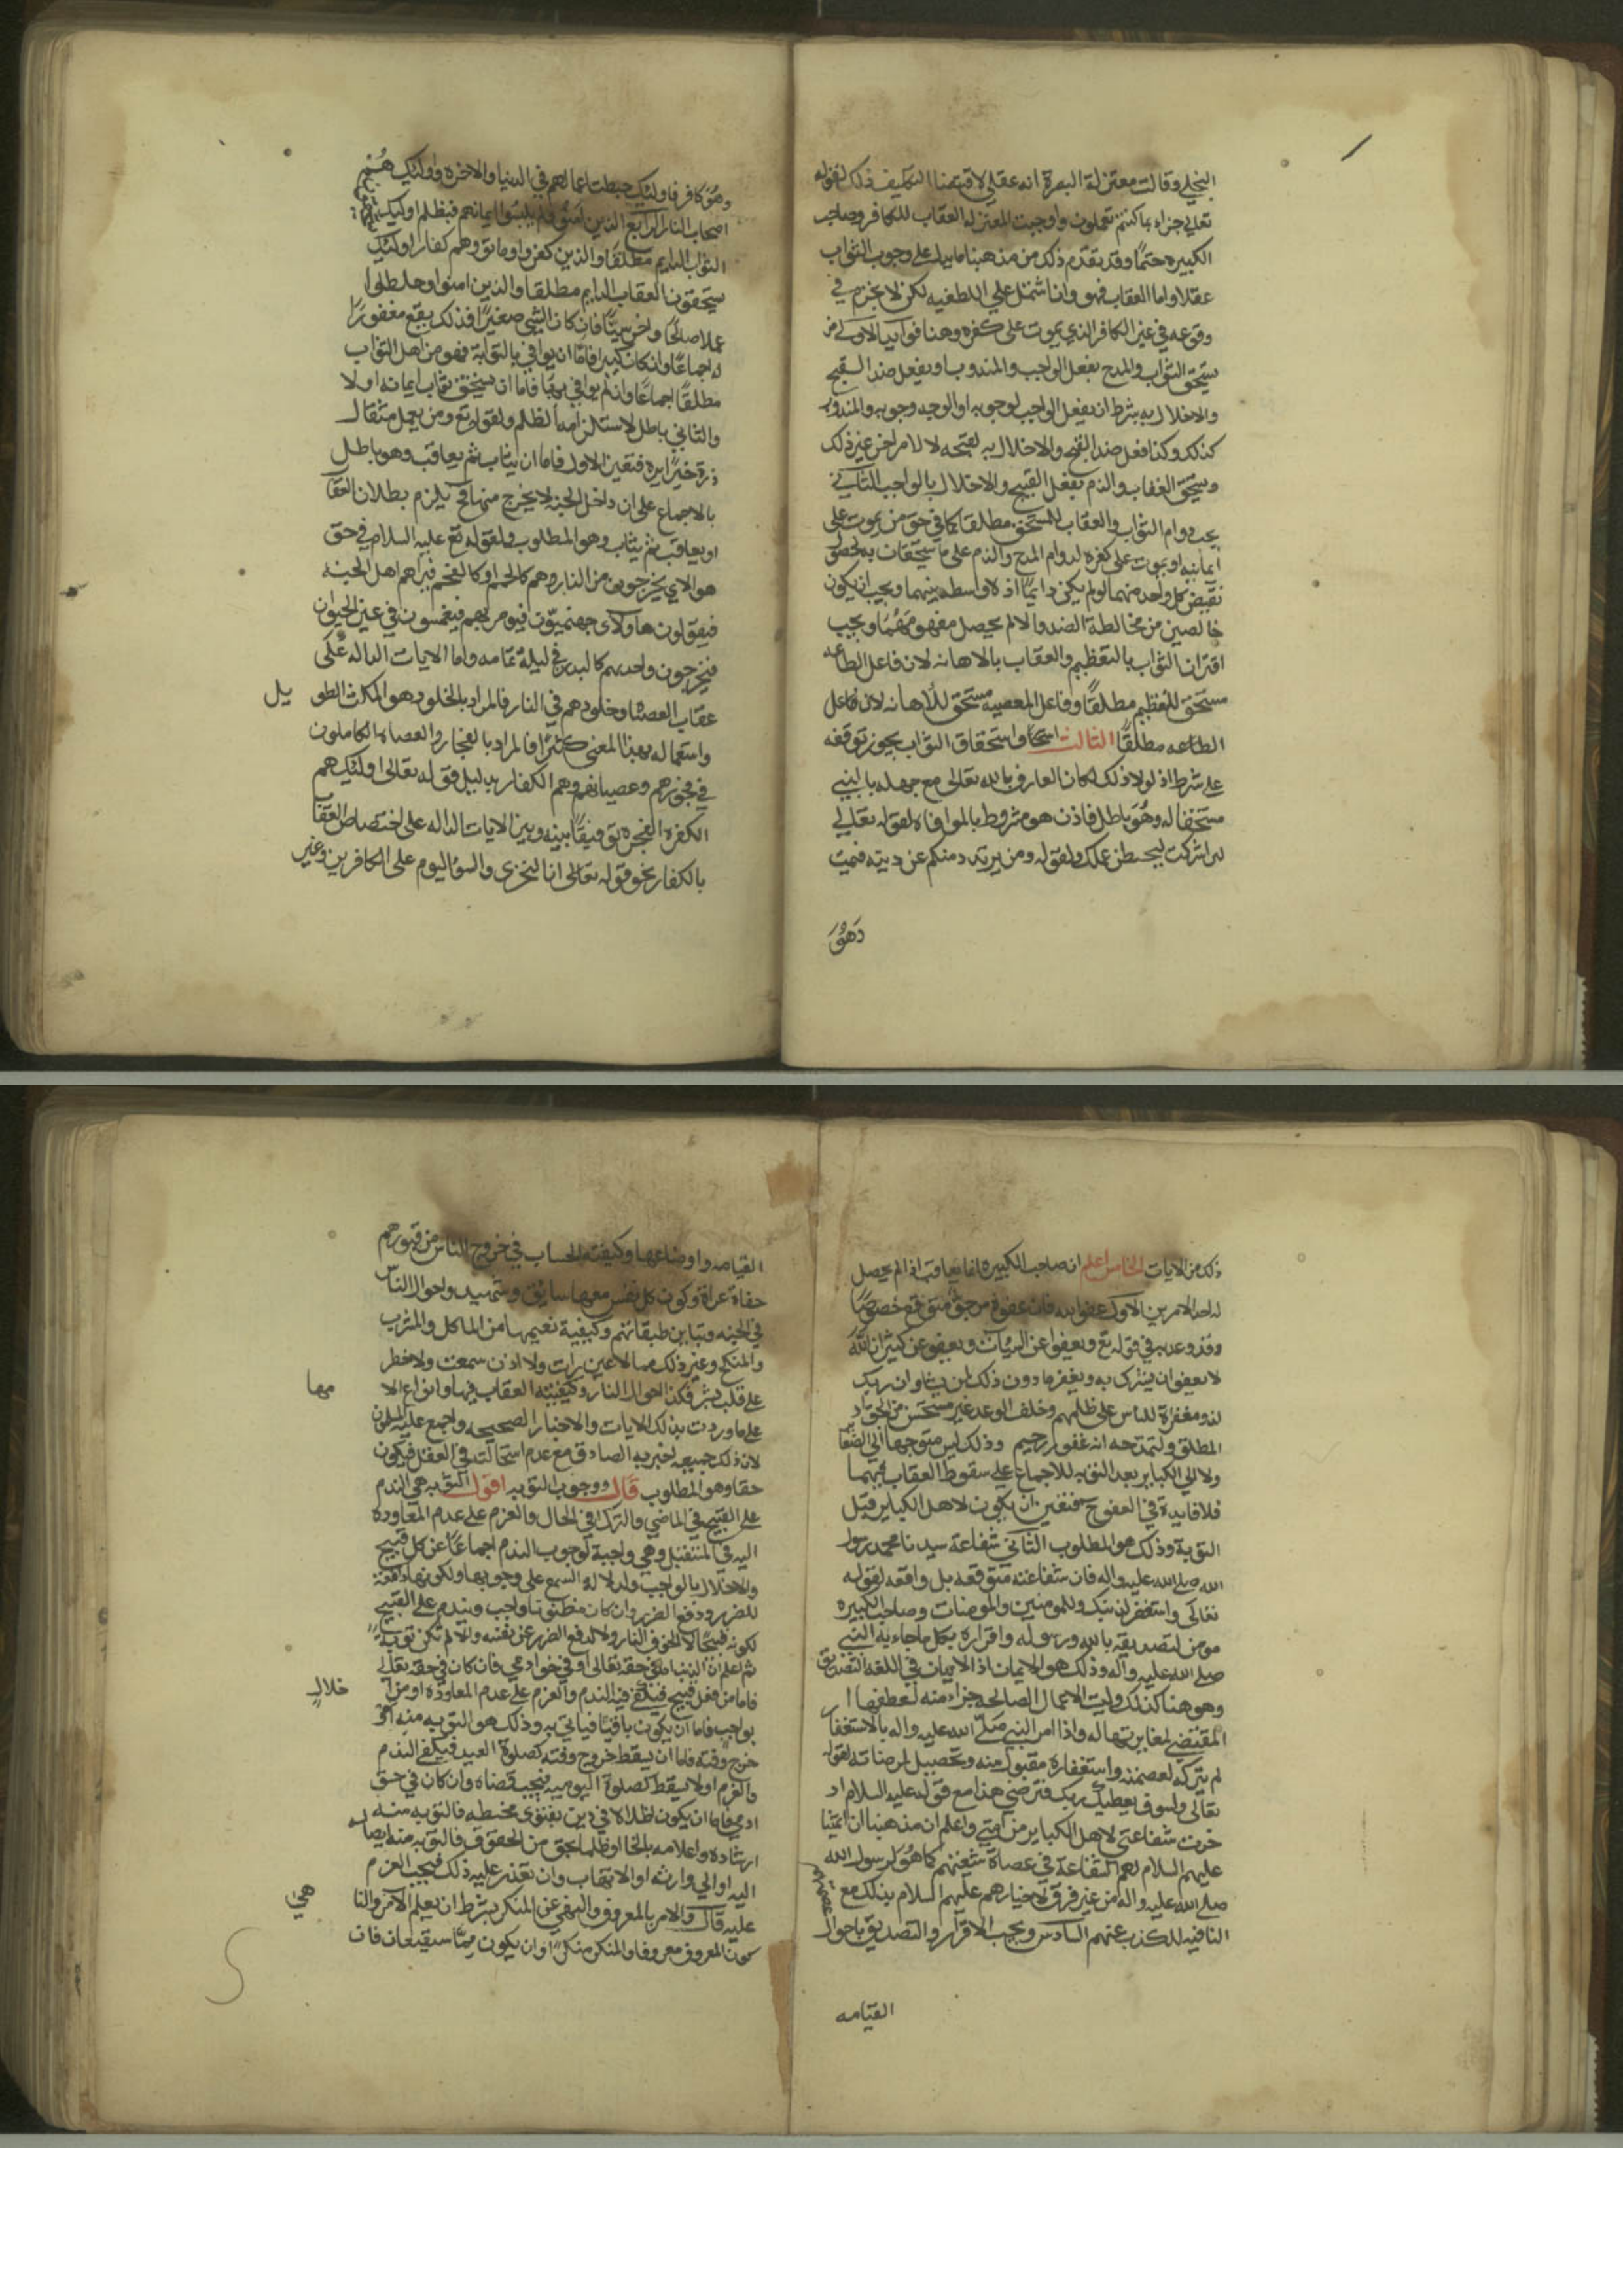 البخلي وقالت معتزلة البصرة انه عقلي لاقتضاء التكليف ذلك لقوله
تعالى جزاء بما كنتم تعملون واوجبت المعتزله العقاب للكافر وصاحب
الكبيره حتمًا وقد تقدم ذلك من مذهبنا ما يدل على وجوب الثواب
عقلا واما العقاب فهو وان اشتمل على اللطفيه لكن لا نجزم في
وقوعه في غير الكافر الذي يموت على كفره وهنا فوائد الاولى
يستحق الثواب والمدح بفعل الواجب والمندوب او بفعل ضد القبيح
والاخلال به بشرط ان يفعل الواجب لوجوبه او لوجه وجوبه والمندوب
كذلك وكذا فعل ضد القبيح والاخلال به لقبحه لا لامر اخر غير ذلك
ويستحق العقاب والذم بفعل القبيح والاخلال بالواجب الثاني
يجب دوام الثواب والعقاب للمستحق مطلقا كما في حق من يموت على
ايمانه او يموت على كفره لدوام المدح والذم على ما يستحقان به لحصول
نقيض كل واحد منهما لو لم يكن دايمًا اذ لا واسطه بينهما ويجب ان يكون
خالصين من مخالطة الضد والا لم يحصل مفهومهما ويجب
اقتران الثواب بالتعظيم والعقاب بالاهانه لان فاعل الطاعه
مستحق للتعظيم مطلقًا وفاعل المعصيه مستحق للاهانه لان فاعل
الطاعه مطلقًا الثالث استحقاق الثواب يجوز توقفه
على شرط اذ لولا ذلك لكان العارف بالله تعالى مع جهله بالنبي
مستحقا له وهو باطل فاذن هو مشروط بالموافاه لقوله تعالى
لئن اشركت ليحبطن عملك ولقوله ومن يرتدد منكم عن دينه فيمت
وهو
وهو كافر فاولئك حبطت اعمالهم في الدنيا والاخرة واولئك
اصحاب النار الرابع الذين امنوا ولم يلبسوا ايمانهم بظلم اولئك
الثواب الدايم مطلقًا والذين كفروا وماتوا وهم كفار اولئك
يستحقون العقاب الدايم مطلقا والذين امنوا وخلطوا
عملا صالحًا واخر سيئًا فان كان السيئ صغيرًا فذلك يقع مغفورًا
له اجماعًا وان كان كبيرا فاما ان يوافي بالتوبة فهو من اهل الثواب
مطلقًا اجماعًا وان لم يوافي بها فاما ان يستحق ثواب ايمانه او لا
والثاني باطل لاستلزامه الظلم ولقوله تع ومن يعمل مثقال
ذرة خيرًا يره فتعين الاول فاما ان يثاب ثم يعاقب وهو باطل
بالاجماع على ان داخل الجنه لا يخرج منها فح يلزم بطلان العقا
او يعاقب ثم يثاب وهو المطلوب ولقوله تع عليه السلام في حق
هولاء يخرجون من النار وهم كالحمم او كالفحم فيراهم اهل الجنه
فيقولون هاولاى جهنميون فيومر بهم فيغمسون في عين الحيوان
فيخرجون واحدهم كالبدر في ليلة تمامه واما الايات الداله على
عقاب العصاه وخلودهم في النار فالمراد بالخلود هو المكث الطو يل
واستعماله بهذا المعنى كثيرًا فالمراد بالفجار والعصاه الكاملون
في فجورهم وعصيانهم وهم الكفار بدليل قوله تعالى اولئك هم
الكفرة الفجره توفيقًا بينه وبين الايات الداله على اختصاص العقاب
بالكفار نحو قوله تعالى ان الخزي والسوء اليوم على الكافرين وغير
ذلك من الايات الخامس اعلم ان صاحب الكبيره انما يعاقب اذا لم يحصل
له احد الامرين الاول عفو الله فان عفوه مرجو متوقع خصوصًا
وقد وعد به في قوله تع ويعفوا عن السيات ويعفو عن كثير ان الله
لا يغفر ان يشرك به ويغفر ما دون ذلك لمن يشاء وان ربك
لذو مغفرة للناس على ظلمهم وخلف الوعد غير مستحسن من الجواد
المطلق ولتمدحه انه غفور رحيم وذلك ليس متوجها الى الصغا
ولا الى الكباير بعد التوبه للاجماع على سقوط العقاب فيهما
فلا فايدة في العفو ح فتعين ان يكون لاهل الكباير قبل
التوبة وذلك هو المطلوب الثاني شفاعة سيدنا محمد رسول
الله صلى الله عليه واله فان شفاعته متوقعه بل واقعه لقوله
تعالى واستغفر لذنبك وللمومنين والمومنات وصاحب الكبيره
مومن لتصديقه بالله ورسوله واقراره بكل ما جاء به النبي
صلى الله عليه واله وذلك هو الايمان اذ الايمان في اللغه التصديق
وهو هنا كذلك وليت الاعمال الصالحه جزاء منه لعطفها
المقتضى لمغايرتها له واذا امر النبي صلى الله عليه واله بالاستغفا ر
لم يتركه لعصمته واستغفاره مقبول منه وتحصيل لمرضاته لقوله
تعالى ولسوف يعطيك ربك فترضى هذا مع قوله عليه السلام اد
خرت شفاعتى لاهل الكباير من امتي واعلم ان مذهبنا ان ائمتنا
عليهم السلام لهم الشفاعة في عصاة شيعتهم كما هو لرسول الله
صلى الله عليه واله من غير فرق لاخبارهم عليهم السلام بذلك مع عصمتهم
النافيه للكذب عنهم السادس ويجب الاقرار والتصديق باحوال
القيامه
القيامه واوضاعها وكيفته الحساب في خروج الناس من قبورهم
حفاة عراة وكون كل نفس معها سايق وشهيد واحوال الناس
في الجنه وتباين طبقاتهم وكيفية نعيمها من الماكل والمشرب
والمنكح وغير ذلك مما لا عين رات ولا اذن سمعت ولا خطر
على قلب بشر وكذا احوال النار وكيفيته العقاب فيها وانواع الا مها
على ما وردت بذلك الايات والاخبار الصحيحه واجمع عليه المسلمون
لان ذلك جميعه اخبر به الصادق مع عدم استحالته في العقل فيكون
حقا وهو المطلوب قال ووجوب التوبه اقول التوبه هي الندم
على القبيح في الماضي والترك في الحال والعزم على عدم المعاودة
اليه في المستقبل وهي واجبة لوجوب الندم اجماعًا عن كل قبيح
والاخلال بالواجب ولدلاله السمع على وجوبها ولكونها دافعة
للضرر ودفع الضرر وان كان مظنونا واجب ويندم على القبيح
لكونه قبيحًا لا لخوف النار ولا لدفع الضرر عن نفسه والا لم تكن توبةً
ثم اعلم ان الذنب اما في حقه تعالى او في حق ادمي فان كان في حقه تعالى
فاما من فعل قبيح فيكفي فيه الندم والعزم على عدم المعاوده او من ا خلال
بواجب فاما ان يكون باقيًا فياتي به وذلك هو التوبه منه او
خرج وقته فاما ان يسقط خروج وقته كصلوة العيد فيكفي الندم
والعزم او لا يسقط كصلوة اليوميه فيجب قضاه وان كان في حق
ادمي فاما ان يكون اضلالا في دين بفتوى مخطئه فالتوبه منه
ارشاده واعلامه بالخطا او ظلما لحق من الحقوق فالتوبه منه ايصاله
اليه او الي وارثه او الاتهاب وان تعذر عليه ذلك فيجب العزم
عليه قال والامر بالمعروف والنهي عن المنكر بشرط ان يعلم الامر والنا هي
كون المعروف معروفا والمنكر منكرًا وان يكون مما سيقعان فان